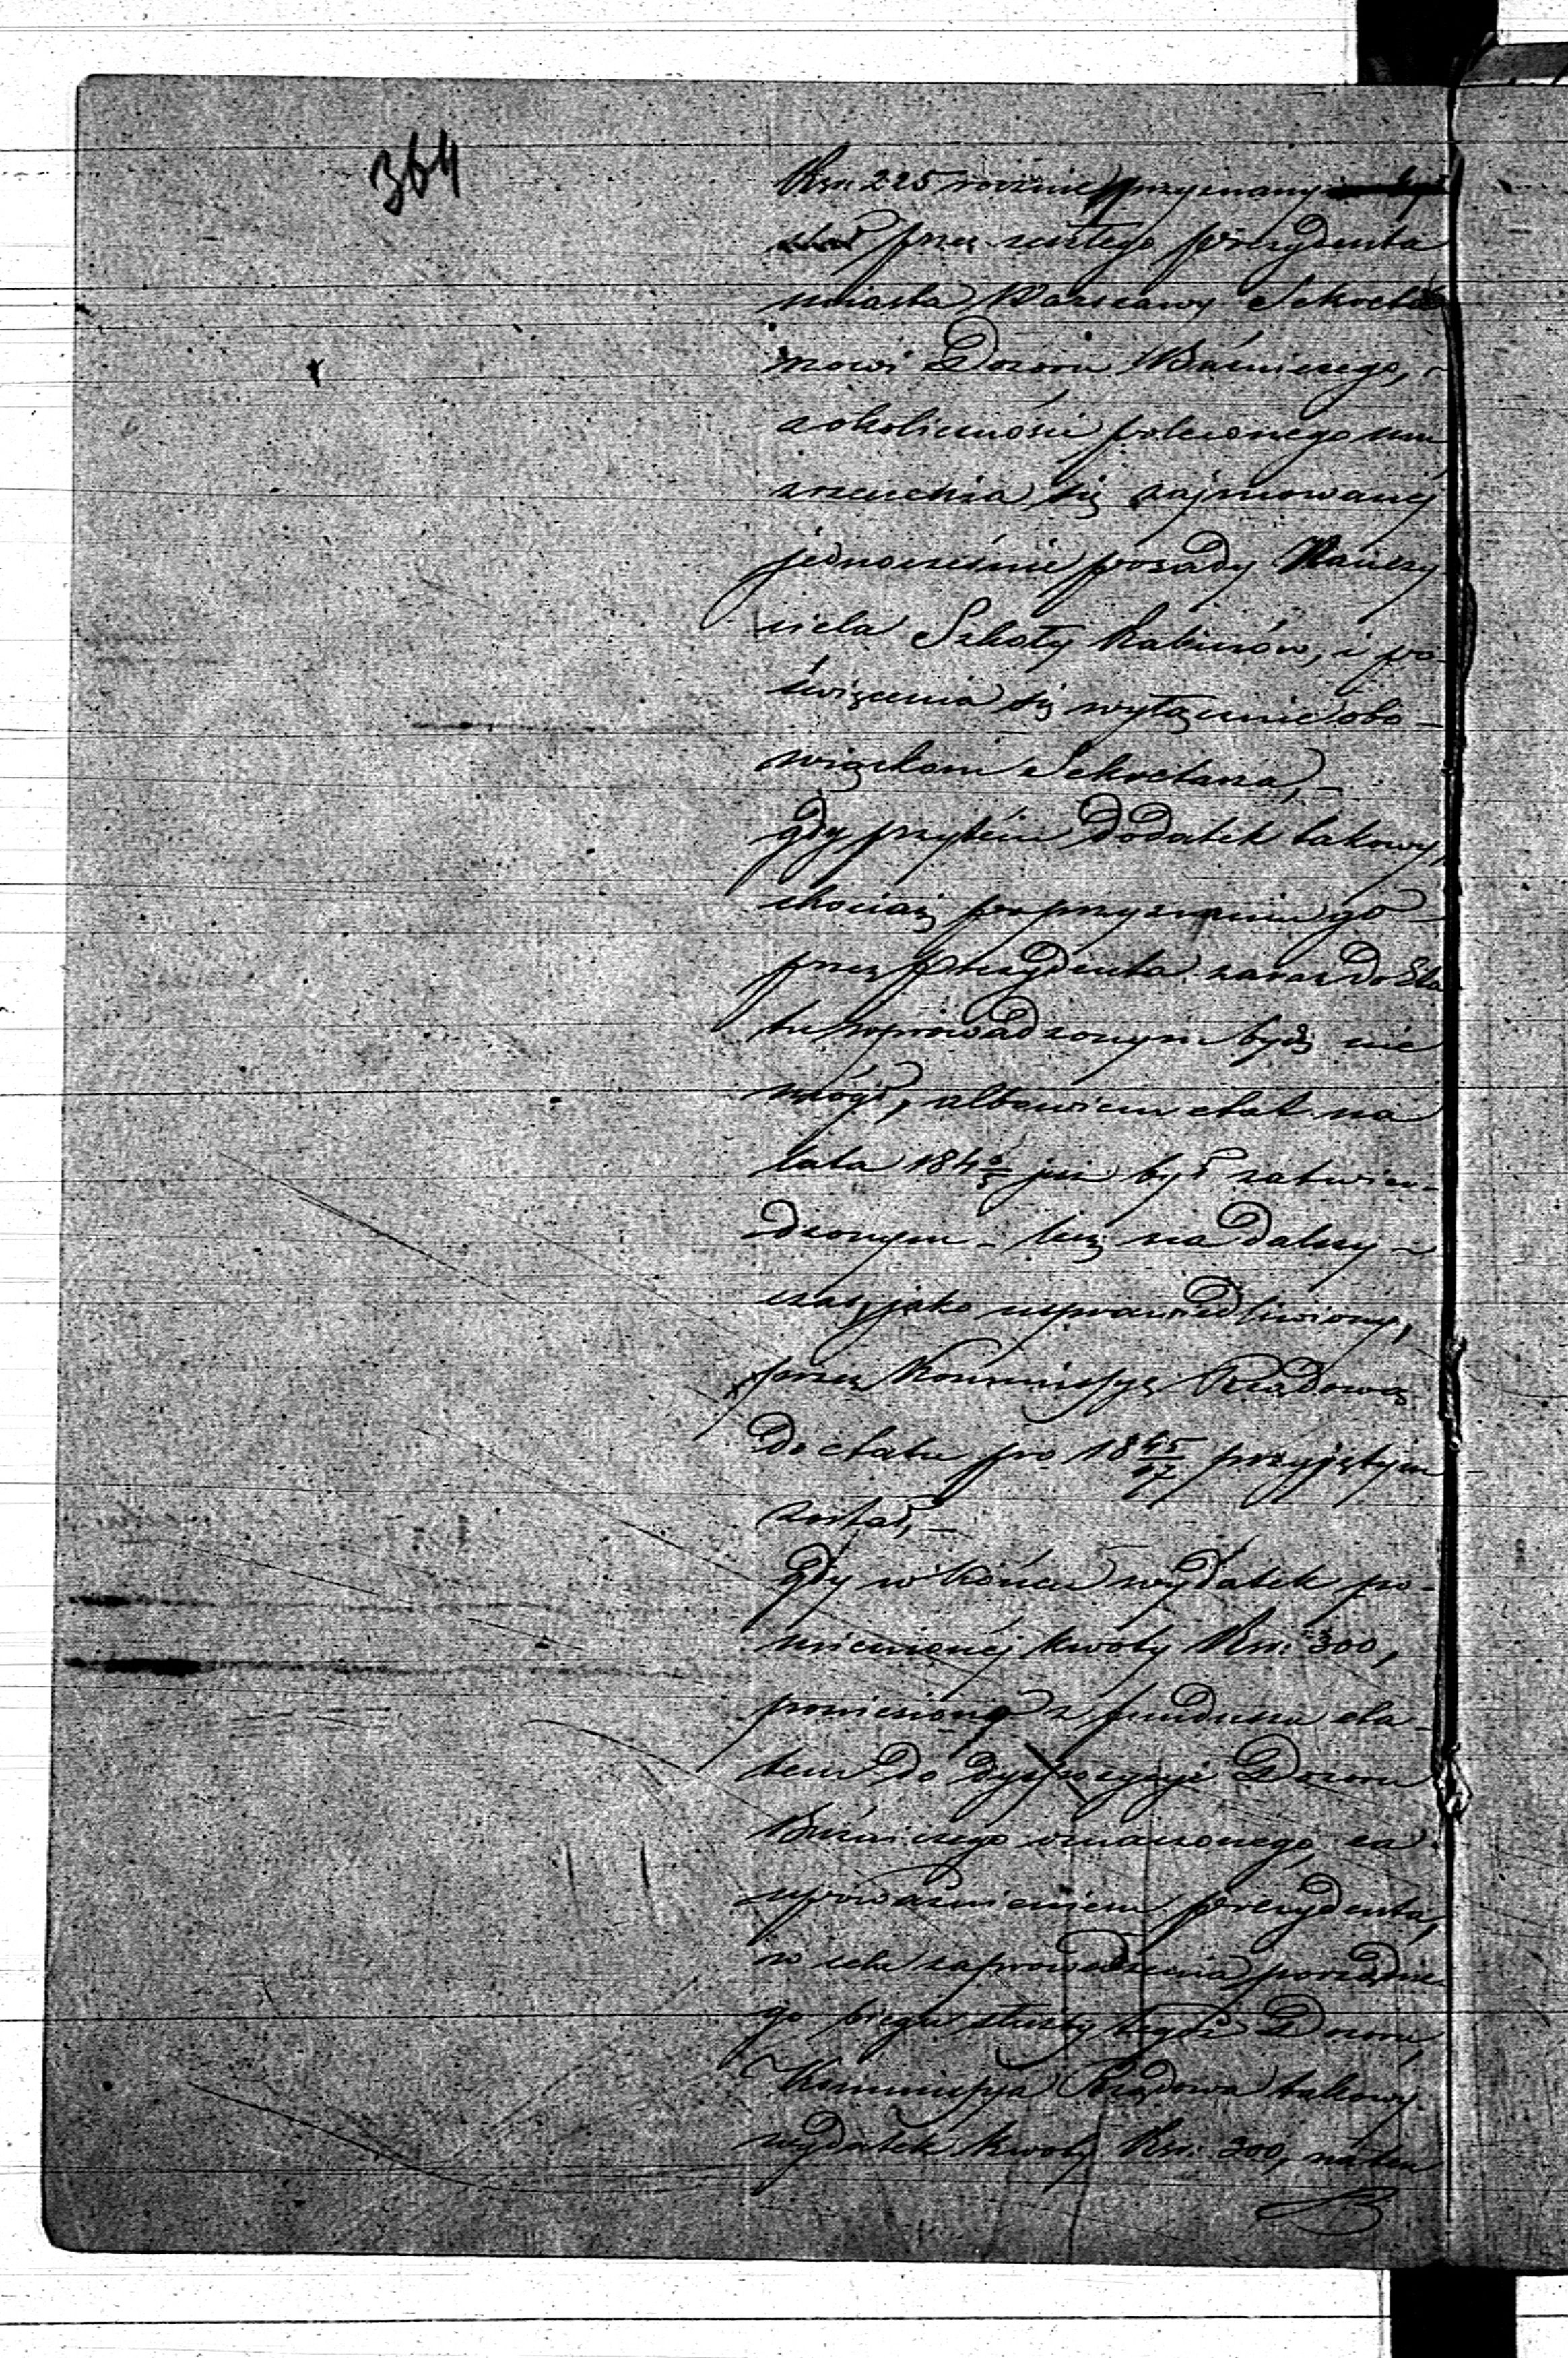 364
Rsr. 225 rocznie, przyznany
przez zeszłego Prezydenta
miasta Warszawy Sekreta
rzowi Dozoru Bóżniczego,
z okoliczności poleconego mu
zrzeczenia się zajmowanej
jednocześnie posady Nauczy
ciela Szkoły Rabinów, i po-
święcenia się wyłącznie obo-
wiązkom Sekretarza, –
gdy przytém dodatek takowy,
chociaż po przyznaniu go
przez Prezydenta zaraz do Eta
tu wprowadzonym bydź nie
mógł, albowiem etat na
lata 184 już był zatwier-
dzonym – lecz na dalszy –
czas, jako usprawiedliwiony,
przez Kommissyę Rządową
do etatu pro 18 45/47 przyjętym
został, –
gdy w końcu wydatek po-
mienionej kwoty Rsr. 300,
poniesiony z funduszu eta-
tem do dyspozycyi Dozoru
Bóżniczego oznaczonego, za
upoważnieniem Prezydenta,
w celu zaprowadzenia porządne
go biegu służby tegoż Dozoru,
Kommissya Rządowa takowy
wydatek kwoty Rsr. 300, na ten